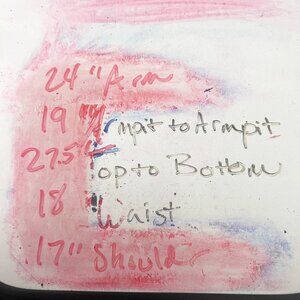 24" Arm
19" Armpit to Armpit
27.5" Top to Bottom
18" Waist
17" Shoulder